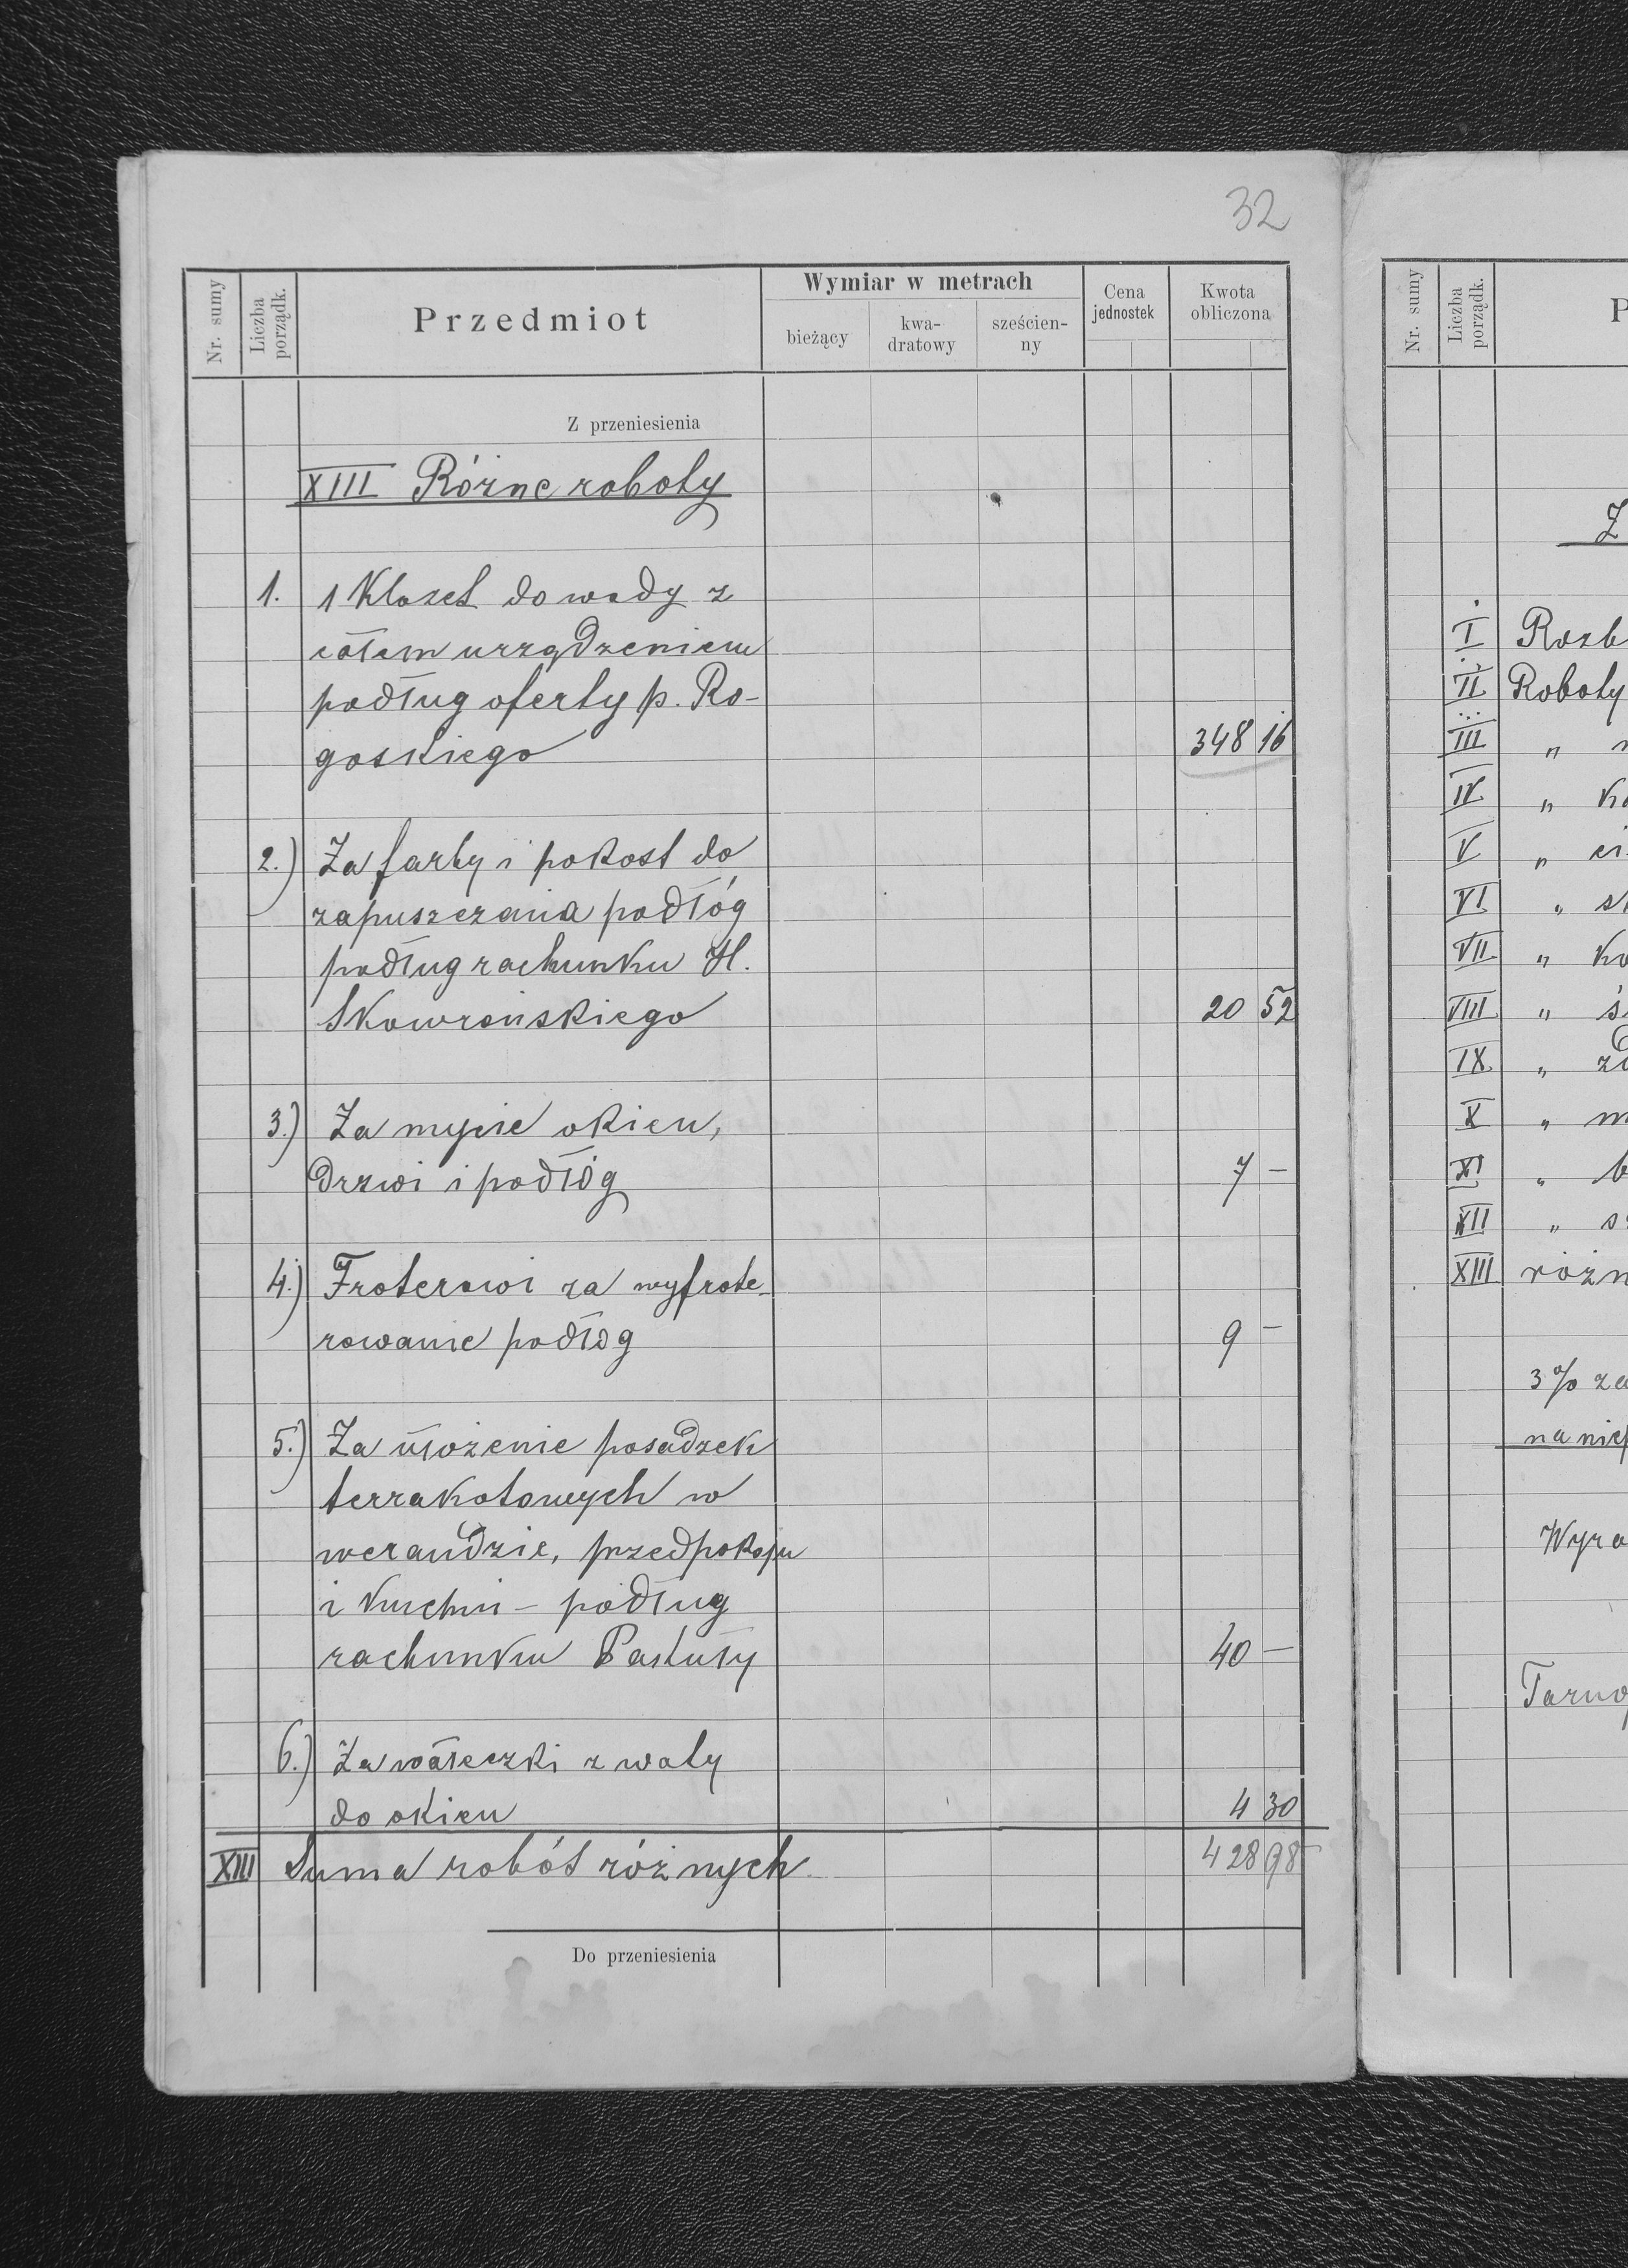 32
Nr. sumy
Liczba porządk.
Przedmiot
Wymiar w metrach
bieżący
kwa-
dratowy
sześcien-
ny
Cena
jednostek
Kwota
obliczona
Z przeniesienia
XIII Różne roboty
1. 1 Klozet do wody z
całem urządzeniem
podług oferty p. Ro-
goskiego 348 16
2.) Za farby i pokost do
zapuszczania podłóg
podług rachunku H.
Skowrońskiego 20 52
3.) Za mycie okien,
drzwi i podłóg 7 –
4.) Froterowi za wyfrote-
rowanie podłóg 9 –
5.) Za ułożenie posadzek
terrakotowych w
werandzie, przedpokoju
i kuchni – podług
rachunku Pastuły 40 –
6.) Za wałeczki z waty
do okien 4 30
XIII Suma robót różnych 428 98
Do przeniesienia
Nr. sumy
Liczba porządk.
P
Z
I Rozb
II Roboty
III "
IV " ko
V " ci
VI "
VII " ko
VIII " ś
IX "
X " m
XI " b
XII "
XIII różn
3% za
na niep
Wyra
Tarno